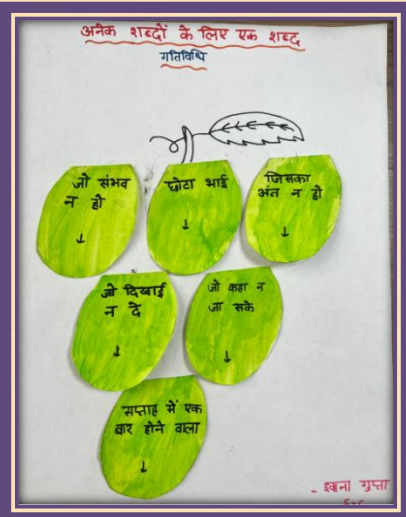 अनेक शब्दों के लिए एक शब्द
गतिविधि
जो संभव
न हो
छोटा भाई
जिसका
अंत न हो
जो दिखाई
न दे
जो कहा न
जा सके
सप्ताह में एक
बार होने वाला
- इवाना गुप्ता